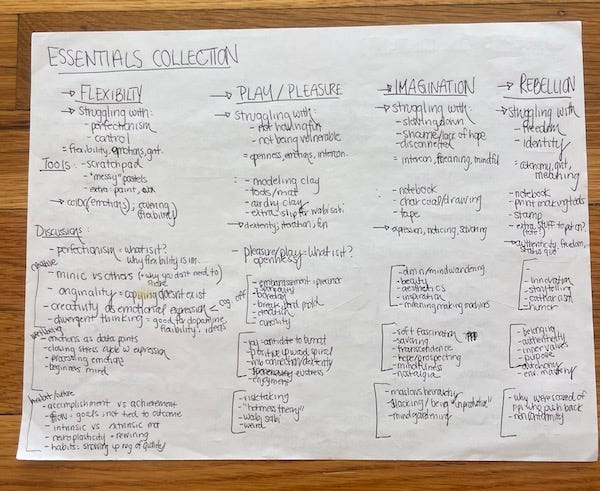 ESSENTIALS COLLECTION
→ FLEXIBILTY
→ struggling with:
- perfectionism
- control
= flexibility, emotions, grit.
Tools: - scratchpad
- "messy" pastels
- extra paint,
→ color(emotions);
(flexibility)
Discussions:
- perfectionism = what is it?
why flexibility is im.
creative
- mimic vs others (+ why you don't need to
- originality = copying doesn't exist
- creativity as emotional expression =
- divergent thinking = good for dopamine,
flexibility, ideas
wellbeing
- emotions as data points
- closing stress cycle w expression
- processing emotions
- beginners mind
- accomplishment vs achievement
- flow: goals not tied to outcome
- intrinsic vs extrinsic mot
- neuroplasticity + rewiring
- habits: showing up reg of quality
→ PLAY/PLEASURE
→ struggling with:
- not having fun
- not being vulnerable
= openness, emotions,
: - modeling clay
- tools/mat
- air dry clay
- extra slip for wabi sabi
→ dexterity, iteration, fun
- pleasure/play = what is it?
openness
- embarrassment:
- boredom
- break, build
- iteration
- curiosity
- joy = antidote to burnout
- positive upward spiral
- mb connection/dexterity
- eustress
- enjoyment
- risk taking
- "hotness theory"
- wabi sabi
- weird
→ IMAGINATION
→ struggling with:
- slowing down
- shame/lack of hope
- disconnected
= mindful
- notebook
- charcoal/drawing
- tape
→ expression, noticing, savoring
- dmn/mindwandering
- beauty
- aesthetics
- inspiration
- meaning making machines
- soft fascination
- savoring
- transcendence
- hope/prospecting
- mindfulness
- nostalgia
- maslows heirarchy
- slacking/being "unproductive"
- mind gardening
→ REBELLION
→ struggling with
- freedom
- identity
= autonomy, grit,
meaning
- notebook
- print making tools
- stamp
- extra stuff to print on?
→ authenticity, freedom,
status quo
- innovation
- storytelling
- catharsis
- humor
- belonging
- authenticity
- inner values
- purpose
- autonomy
- env. masking
- why were scared of
ppl who push back
- nonconformity